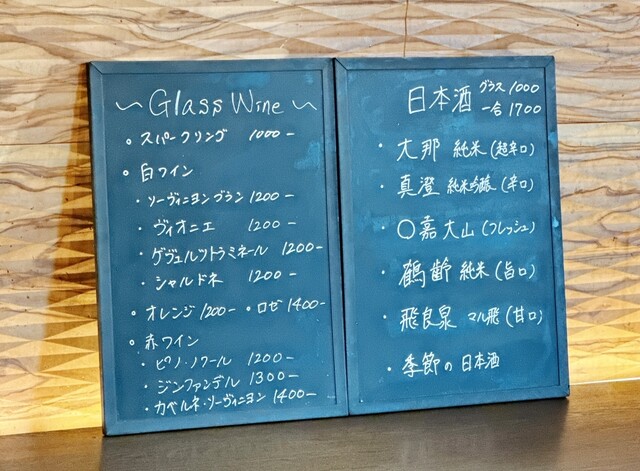 ~ Glass Wine ~
。スパークリング 1000-
。白ワイン
・ソーヴィニヨンブラン 1200-
・ヴィオニエ 1200-
・ゲヴュルツトラミネール 1200-
・シャルドネ 1200-
。オレンジ 1200- ・ロゼ 1400-
。赤ワイン
・ピノ・ノワール 1200-
・ジンファンデル 1300-
・カベルネ・ソーヴィニヨン 1400-
日本酒 グラス 1000
一合 1700
・大那 純米 (超辛口)
・真澄 純米吟醸 (辛口)
・〇嘉大山 (フレッシュ)
・鶴齢 純米 (旨口)
・飛良泉 マル飛 (甘口)
・季節の日本酒